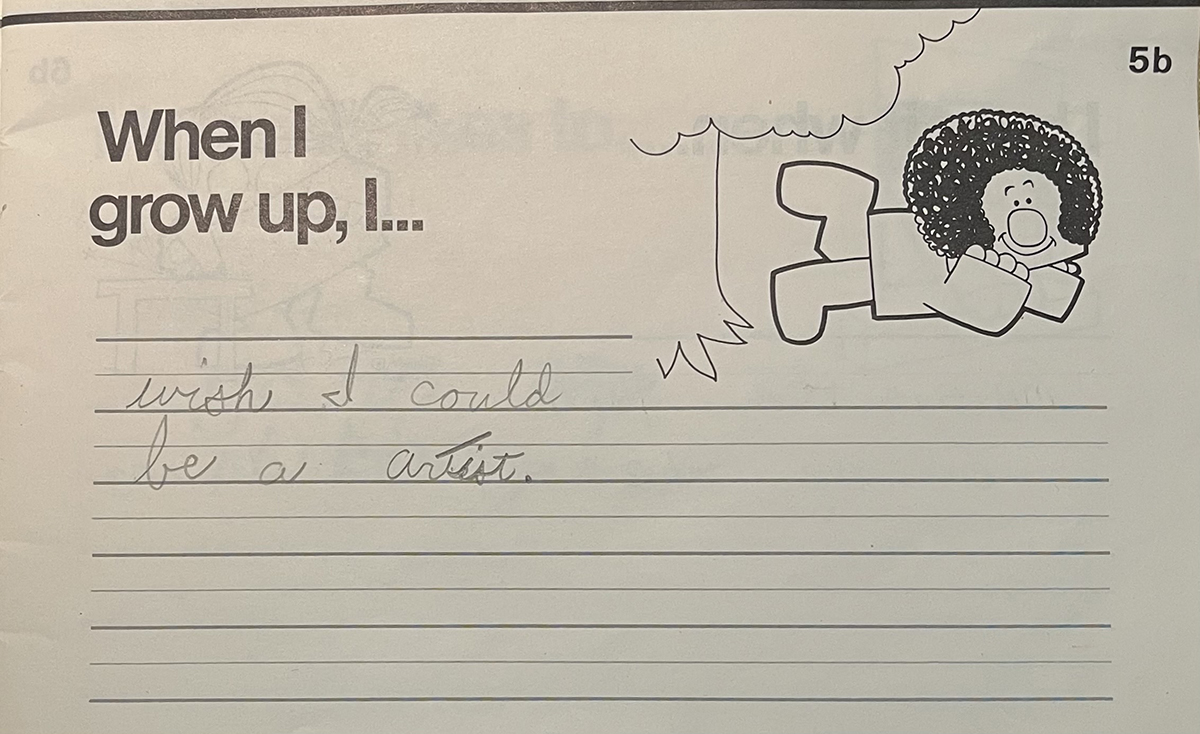 5b
When I
grow up, I...
wish I could
be a artist.